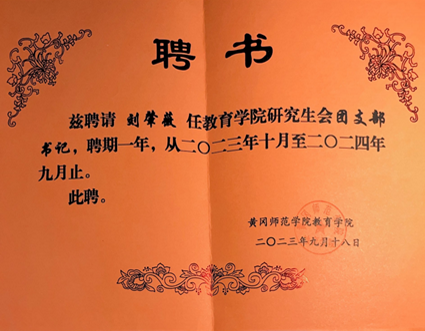 聘书
兹聘请 刘肇薇 任教育学院研究生会团支部
书记，聘期一年，从二〇二三年十月至二〇二四年
九月止。
此聘。
黄冈师范学院教育学院
二〇二三年九月十八日